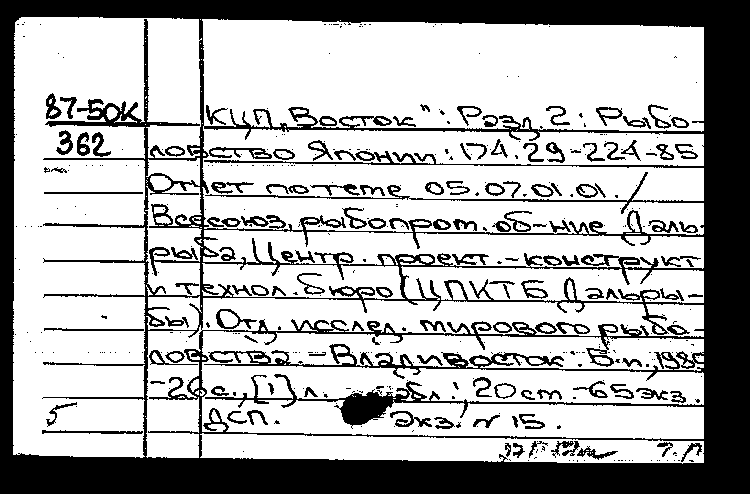 87-50К КЦП „Восток": Разд. 2: Рыбо-
362 ловство Японии: 174.29-224-85
Отчет по теме 05.07.01.01. /
Всесоюз. рыбопром. об-ние Даль-
рыба, Центр. проект.-конструкт
и технол. бюро (ЦПКТБ Дальры-
бы). Отд. исслед. мирового рыбо-
ловства. - Владивосток: Б.и., 1985
-26с., [1] л. табл.; 20см. -65экз.
5 ДСП. Экз. № 15.